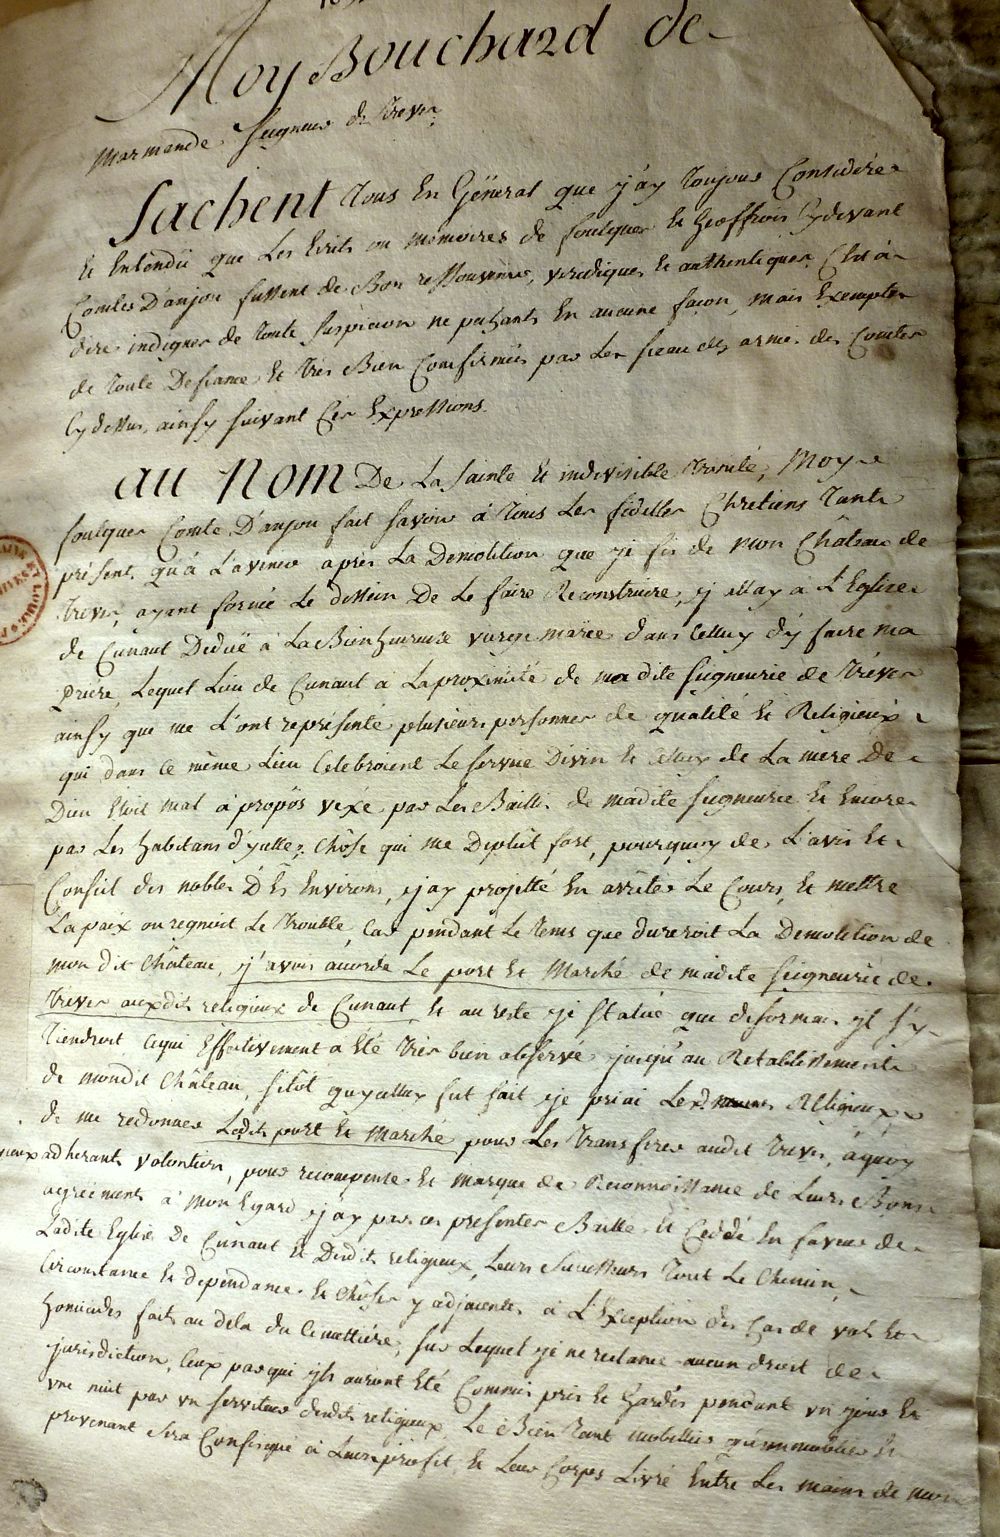 Moy Bouchard de
Marmande Seigneur de Treves
Sachent Tous En Géneral que j'ay Toujours Considérér
Et Entendü que Les Ecrits ou memoires de foulques Et Geoffrois Cydevant
Comtes D'anjou fussent de Bon ressouvenir, veridiques Et authentiques C'est à
dire indignes de Toute suspicion ne pechants En aucune façon, mais Exemptes
de Toute Defiance, Et Très Bien Confirmées par Les sceau des armes des Comtes
Cydessus, ainsy suivant Ces Expressions.
au Nom De La Sainte Et indivisible Trinité, Moy
foulques Comte D'anjou fait savoir à Tous Les fidelles Chretiens Tant
présent, qu'à L'avenir après La Demolition que je fis de mon Château de
Treves, ayant formé Le dessein De Le faire Reconstruire, j'allay à L'Eglise
de Cunaut Dediée à La Bien heureuse vierge marie dans Celluy d'y faire ma
priere, Lequel Lieu de Cunaut à La proximité de madite seigneurie de Tréves
ainsy que me L'ont représenté plusieurs personnes de qualité Et Religieux
qui dans Ce même Lieu Celebroient Le service Divin Et Celluy de La mere De
Dieu Etoit mal à propôs véxé par Les Baillis de madite seigneurie Et Encore
par Les habitans d'ycelle, Chôse qui me Deplut fort, pourquoy de L'avis Et
Conseil des nobles D'És Environs, j'ay projetté En arrêter Le Cours, Et mettre
La paix ou regnoit Le Trouble, Car pendant Le Tems que dureroit La Demolition de
mon dit Château, j'avois accordé Le port Et Marché de madite seigneurie de
Trèves auxdits religieux de Cunaut, Et au reste je statué que desormais yl s'y
Tiendroit Cequi Effectivement a Eté Très bien observé jusqu'au Retablissement
de mondit Château, sitôt qu'ycelluy fut fait je priai Les Religieux
de me redonner Ledit port Et Marché pour Les Transferer audit Treves, àquoy
adherants volontiers, pour recompense Et marque de Reconnoissance de Leurs Bons
agréements à mon Egard, j'ay par ces presentes Baillé Et Ceddé En faveur de
Ladite Eglise De Cunaut Et Desdits religieux, Leurs Successeurs Tout Le Chemin,
Circonstance Et dependance, Et Chôses y adjacentes à L'Exception des Cas de vols Et
homicides faits au dela du Cimettiére, sur Lequel je ne reclame aucun droit de
jurisdiction, Ceux par qui yls auront Eté Commis pris Et Gardés pendant un jour Et
une nuit par un serviteur desdits religieux, Le Bien Tant mobillier qu'immobilier En
provenant sera Confisqué à Leur profit, Et Leur Corps Livré Entre Les mains de mon